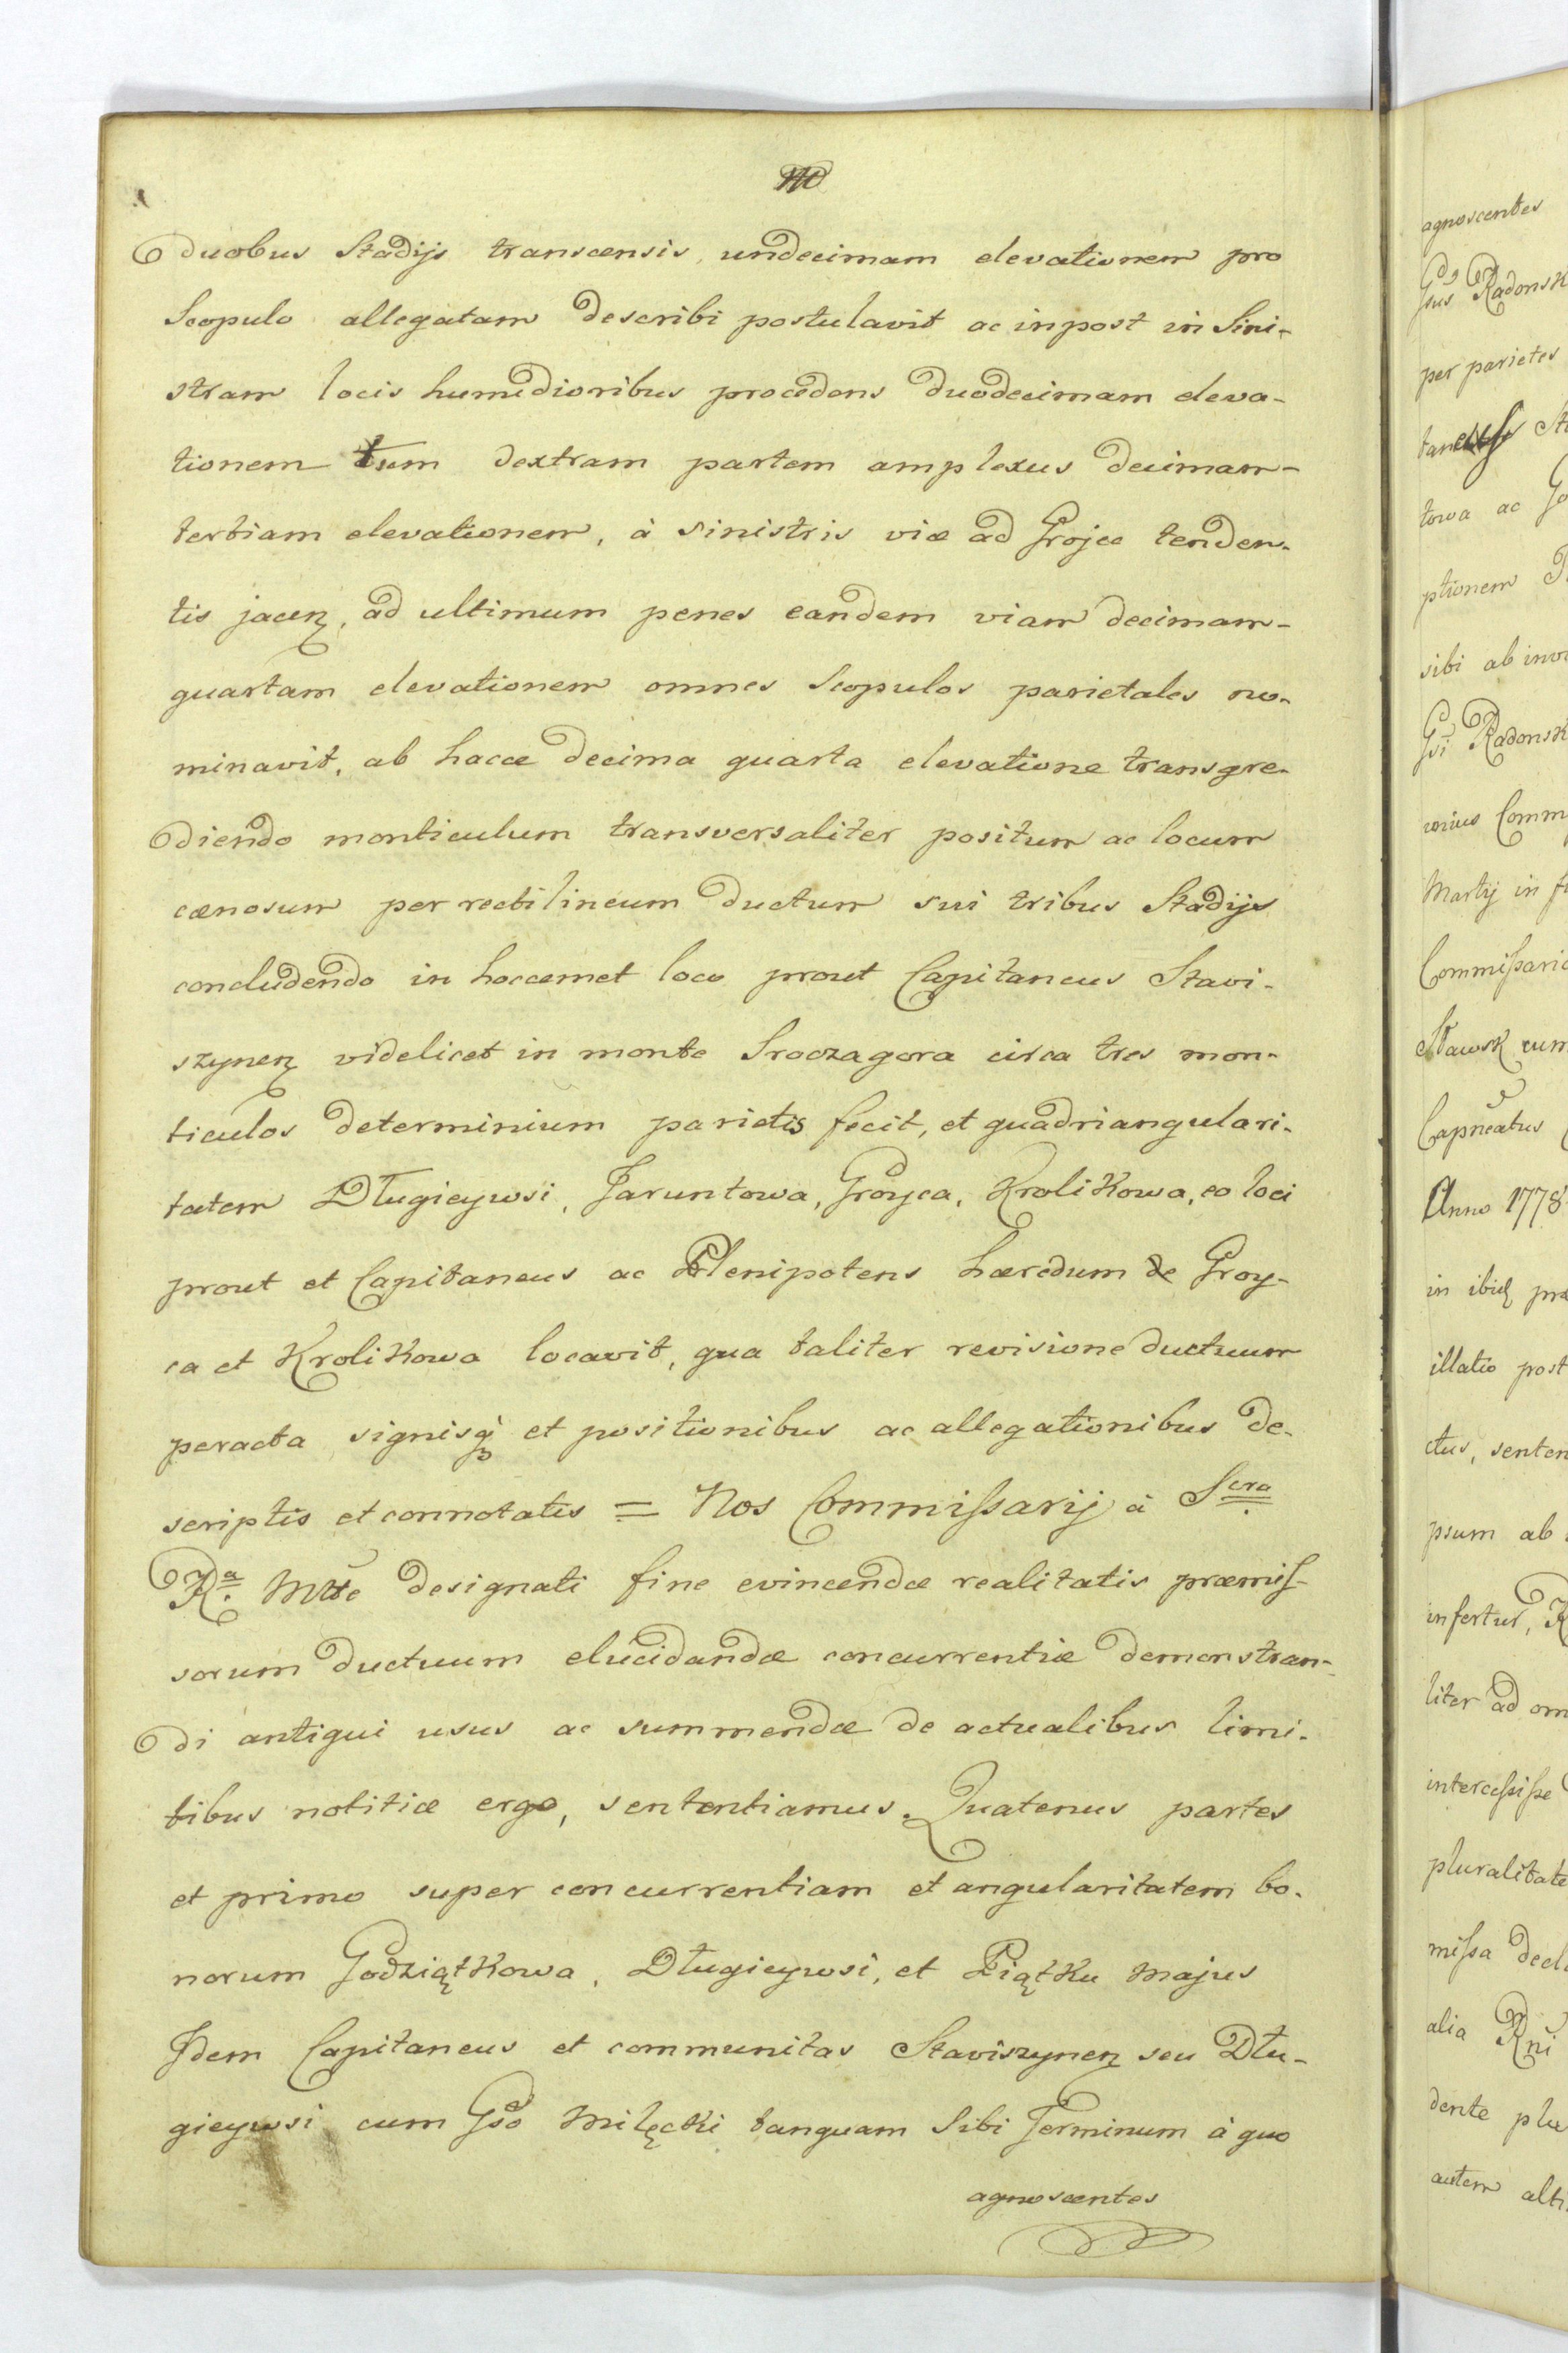 duobus Stadijs transcensis, undecimam elevationem pro
Scopulo allegatam describi postulavit ac inpost in Sini-
stram locis humidioribus procedens duodecimam eleva-
tionem tum dextram partem amplexus decimam-
tertiam elevationem, à sinistris viæ ad Grojec tenden-
tis jacen, ad ultimum penes eandem viam decimam-
quartam elevationem omnes Scopulos parietales no-
minavit, ab hacce decima quarta elevatione transgre-
diendo monticulum transversaliter positum ac locum
cænosum per rectilineum ductum sui tribus Stadijs
concludendo in hoccemet loco prout Capitaneus Stavi-
szynen videlicet in monte Sroczagora circa tres mon-
ticulos determinium parietis fecit, et quadriangulari-
tatem Długieywsi, Jaruntowa, Groyca, Krolikowa, eo loci
prout et Capitaneus ac Plenipotens hæredum de Groy-
ca et Krolikowa locavit, qua taliter revisione ductuum
peracta signisq et positionibus ac allegationibus de-
scriptis et connotatis = Nos Commissarij à Scra
Ra. Mtte designati fine evincendæ realitatis præmis-
sorum ductuum elucidandæ concurrentiæ demonstran-
di antiqui usus ac summendæ de actualibus limi-
tibus notitiæ ergo, sententiamus. Quatenus partes
et primo super concurrentiam et angularitatem bo-
norum Godziątkowa, Długieywsi, et Piątku majus
Idem Capitaneus et communitas Staviszynen seu Dłu-
gieywsi cum Gso Milęcki tanquam Sibi Terminum à quo
agnoscentes
agnoscentes
Gsus Radonsk
per parietes
towa ac Go
ptionem
sibi ab inv
Gsi Radonsk
Comm
Martij in f
Commissario
Stawsk cum
Capneatus
Anno 1778
in ibid
illatio post
ctus, senten
psum ab
infertur,
liter ad om
intercessisse
pluralitate
missa decl
alia Rni
dente plu
autem alt